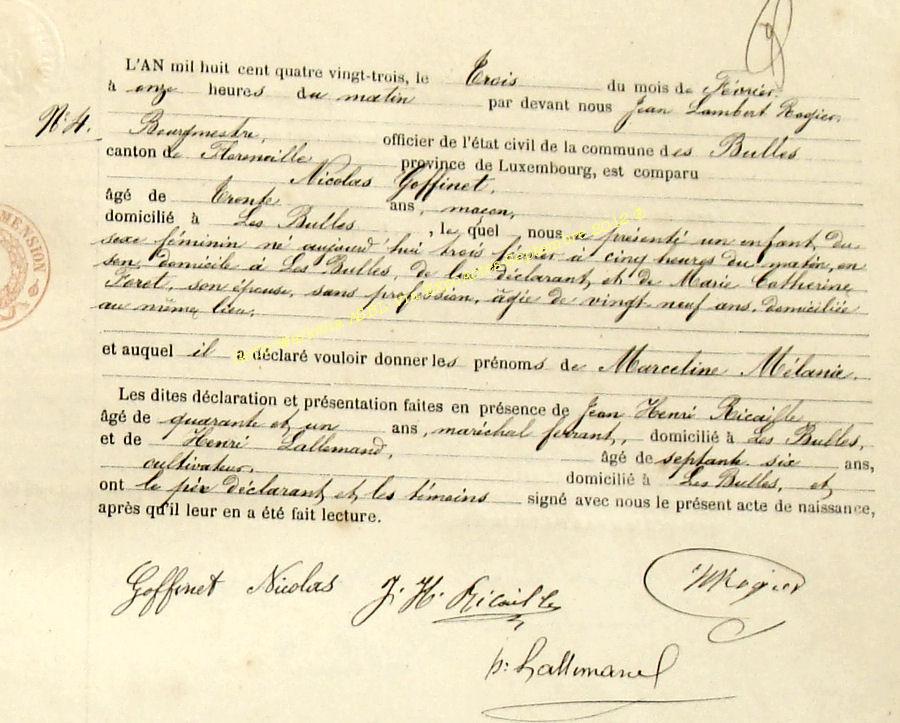 L'AN mil huit cent quatre vingt-trois, le Trois du mois de Février
à onze heures du matin par devant nous Jean Lambert Rogier,
N° 4. Bourgmestre, officier de l'état civil de la commune des Bulles
canton de Florenville province de Luxembourg, est comparu
Nicolas Goffinet,
âgé de Trente ans, maçon,
domicilié à Les Bulles, le quel nous a présenté un enfant du
sexe féminin né aujourd'hui trois février à cinq heures du matin, en
son domicile à Les Bulles, de lui déclarant et de Marie Catherine
Foret, son épouse, sans profession, âgée de vingt-neuf ans, domiciliée
au même lieu,
et auquel il a déclaré vouloir donner les prénoms de Marceline Mélanie.
Les dites déclaration et présentation faites en présence de Jean Henri Ricaille
âgé de quarante et un ans, maréchal ferrant, domicilié à Les Bulles,
et de Henri Lallemand, âgé de septante six ans,
cultivateur, domicilié à Les Bulles, et
ont le père déclarant et les témoins signé avec nous le présent acte de naissance,
après qu'il leur en a été fait lecture.
Goffinet Nicolas J. H. Ricaille Rogier
h: Lallemand
MENSION